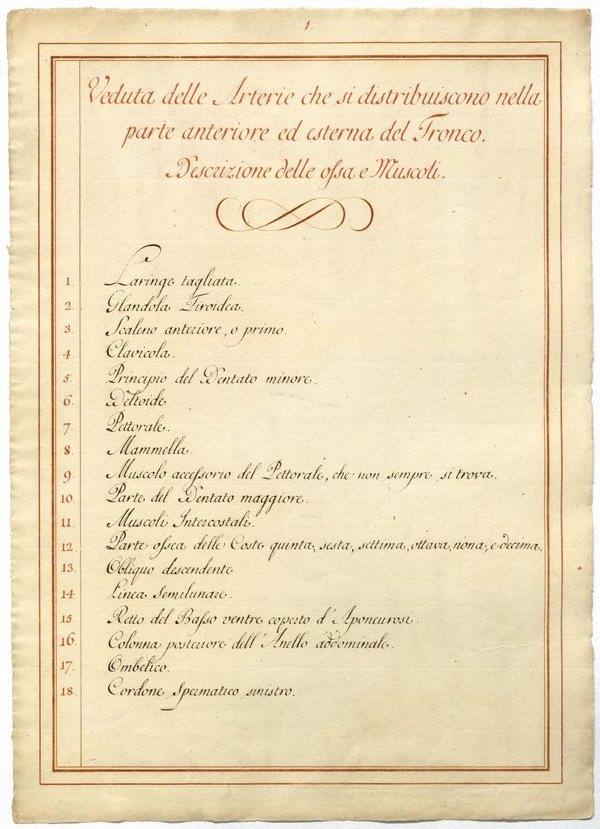 1.
Veduta delle Arterie che si distribuiscono nella
parte anteriore ed esterna del Tronco.
Descrizione delle ossa e Muscoli.
1. Laringe tagliata.
2. Glandola Tiroidea.
3. Scaleno anteriore, o primo.
4. Clavicola.
5. Principio del Dentato minore.
6. Deltoide
7. Pettorale.
8. Mammella.
9. Muscolo accessorio del Pettorale, che non sempre si trova.
10. Parte del Dentato maggiore.
11. Muscoli Intercostali.
12. Parte ossea delle Coste quinta, sesta, settima, ottava, nona, e decima.
13. Obliquo descendente
14. Linea Semilunare.
15. Retto del Basso ventre coperto d'Aponeurosi.
16. Colonna posteriore dell'Anello addominale.
17. Ombelico.
18. Cordone Spermatico sinistro.